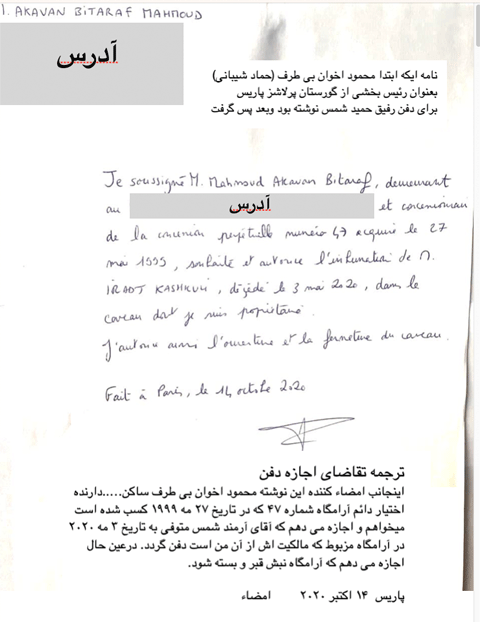 M. AKAVAN BITARAF MAHMOUD
آدرس
نامه ایکه ابتدا محمود اخوان بی طرف (حماد شیبانی)
بعنوان رئیس بخشی از گورستان پرلاشز پاریس
برای دفن رفیق حمید شمس نوشته بود وبعد پس گرفت
Je soussigné M. Mahmoud Akavan Bitaraf, demeurant
au آدرس et concessionnaire
de la concession perpétuelle numéro 47 acquise le 27
mai 1999, souhaite et autorise l'inhumation de M.
IRADT KASHKULI, dégédé le 3 mai 2020, dans le
caveau dont je suis propriétaire.
J'autorise aussi l'ouverture et la fermeture du caveau.
Fait à Paris, le 14 octobre 2020
ترجمه تقاضای اجازه دفن
اینجانب امضاء کننده این نوشته محمود اخوان بی طرف ساکن.....دارنده
اختیار دائم آرامگاه شماره ۴۷ که در تاریخ ۲۷ مه ۱۹۹۹ کسب شده است
میخواهم و اجازه می دهم که آقای آرمند شمس متوفی به تاریخ ۳ مه ۲۰۲۰
در آرامگاه مزبوط که مالکیت اش از آن من است دفن گردد. درعین حال
اجازه می دهم که آرامگاه نبش قبر و بسته شود.
پاریس ۱۴ اکتبر ۲۰۲۰ امضاء